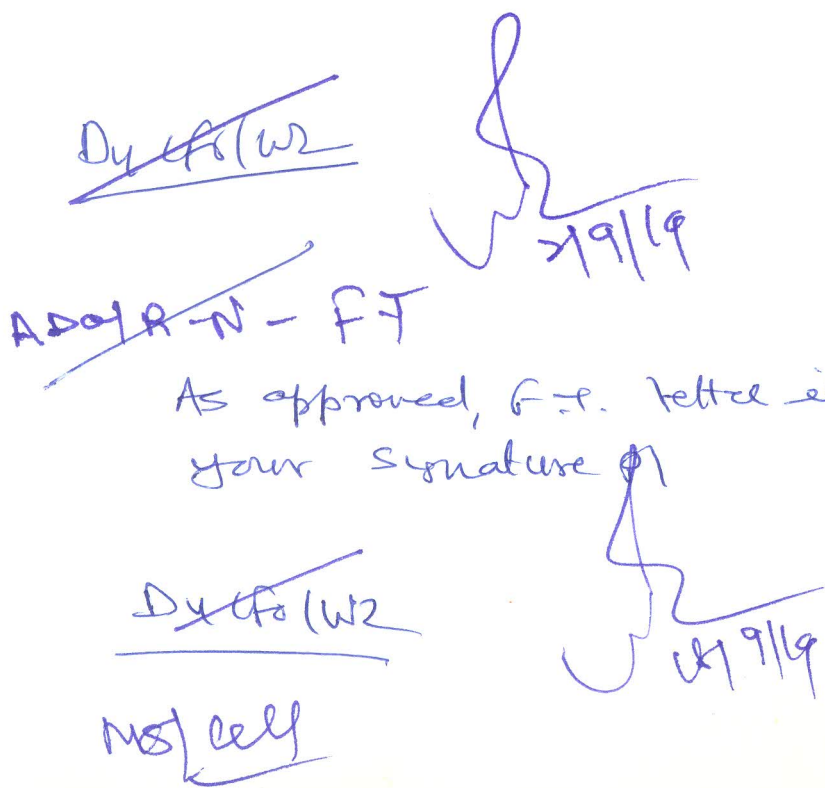 Dy CFO/W2
2/9/19
ADO/R-N-FT
As approved, F.T. letter
your signature pl
Dy CFO/W2
9/19
MS/Cell